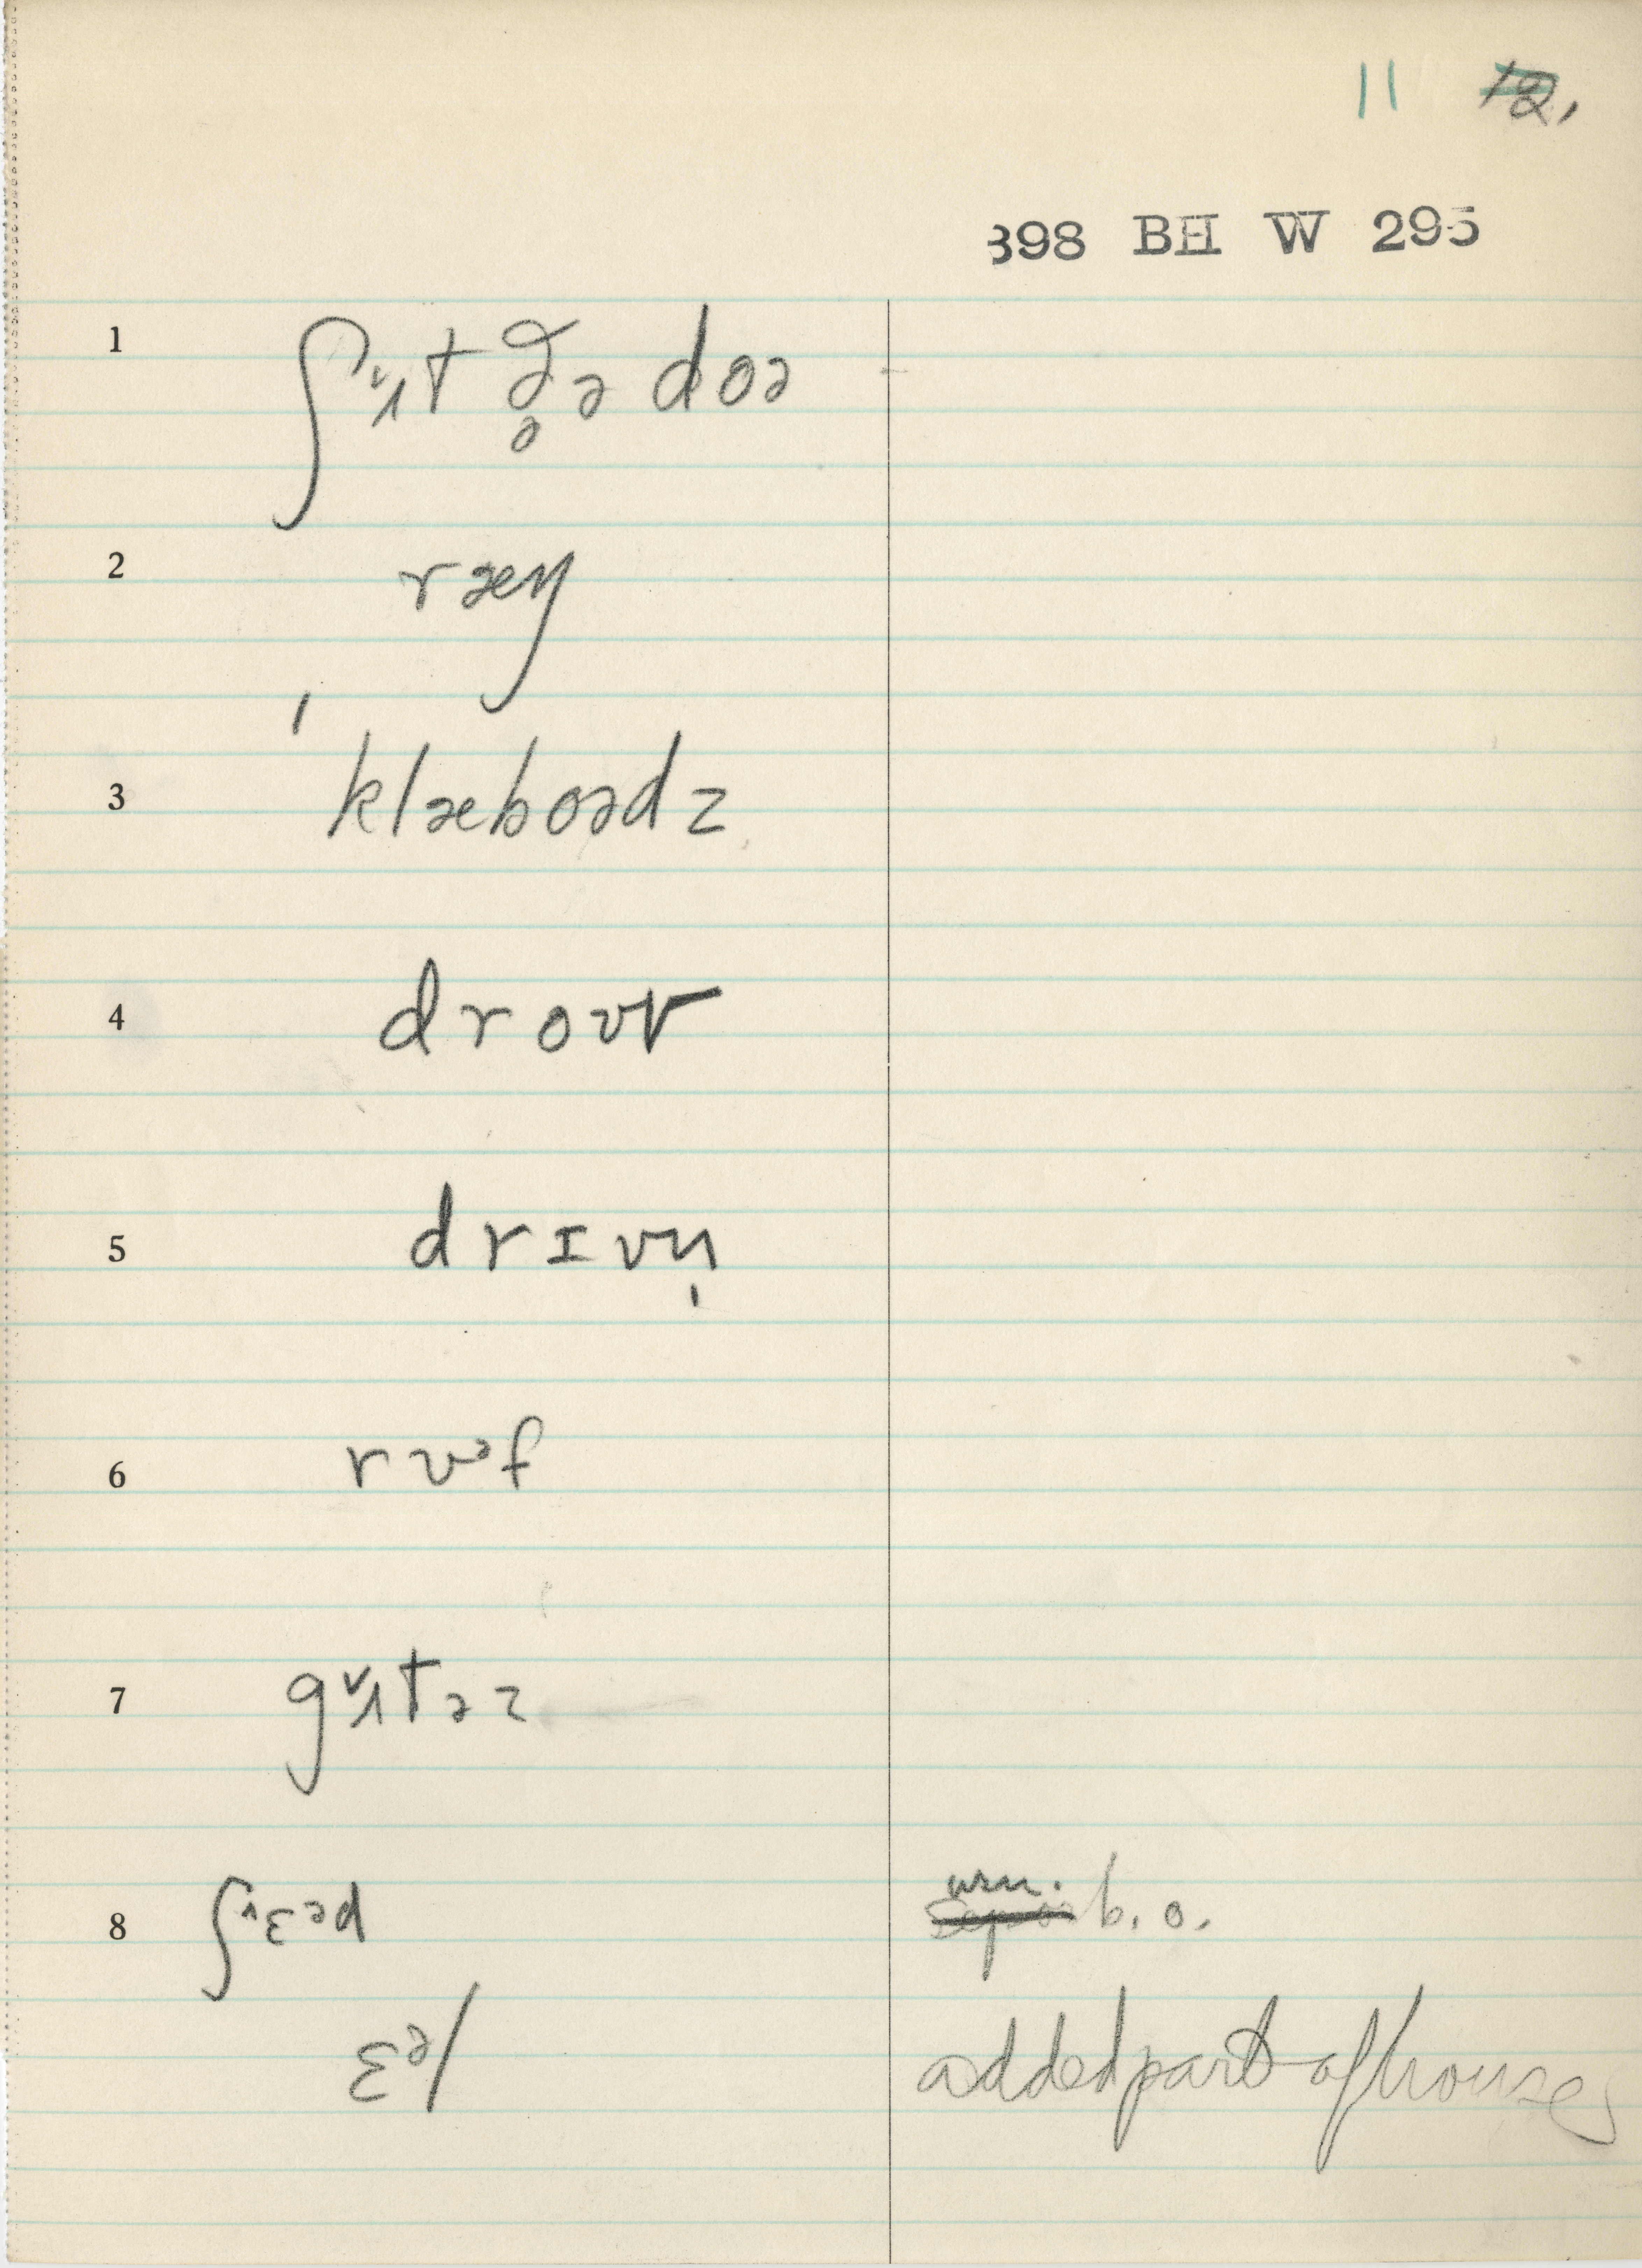 11 12,
398 BH W 295
1 ʃʌ̌t ðə doə
2 ræŋ
3 klæboədz
4 drouv
5 drɪvn̩
6 rʊᵊf
7 gʌtəz
8 ʃɛᵊd b. o.
ɛᵊl added part of house